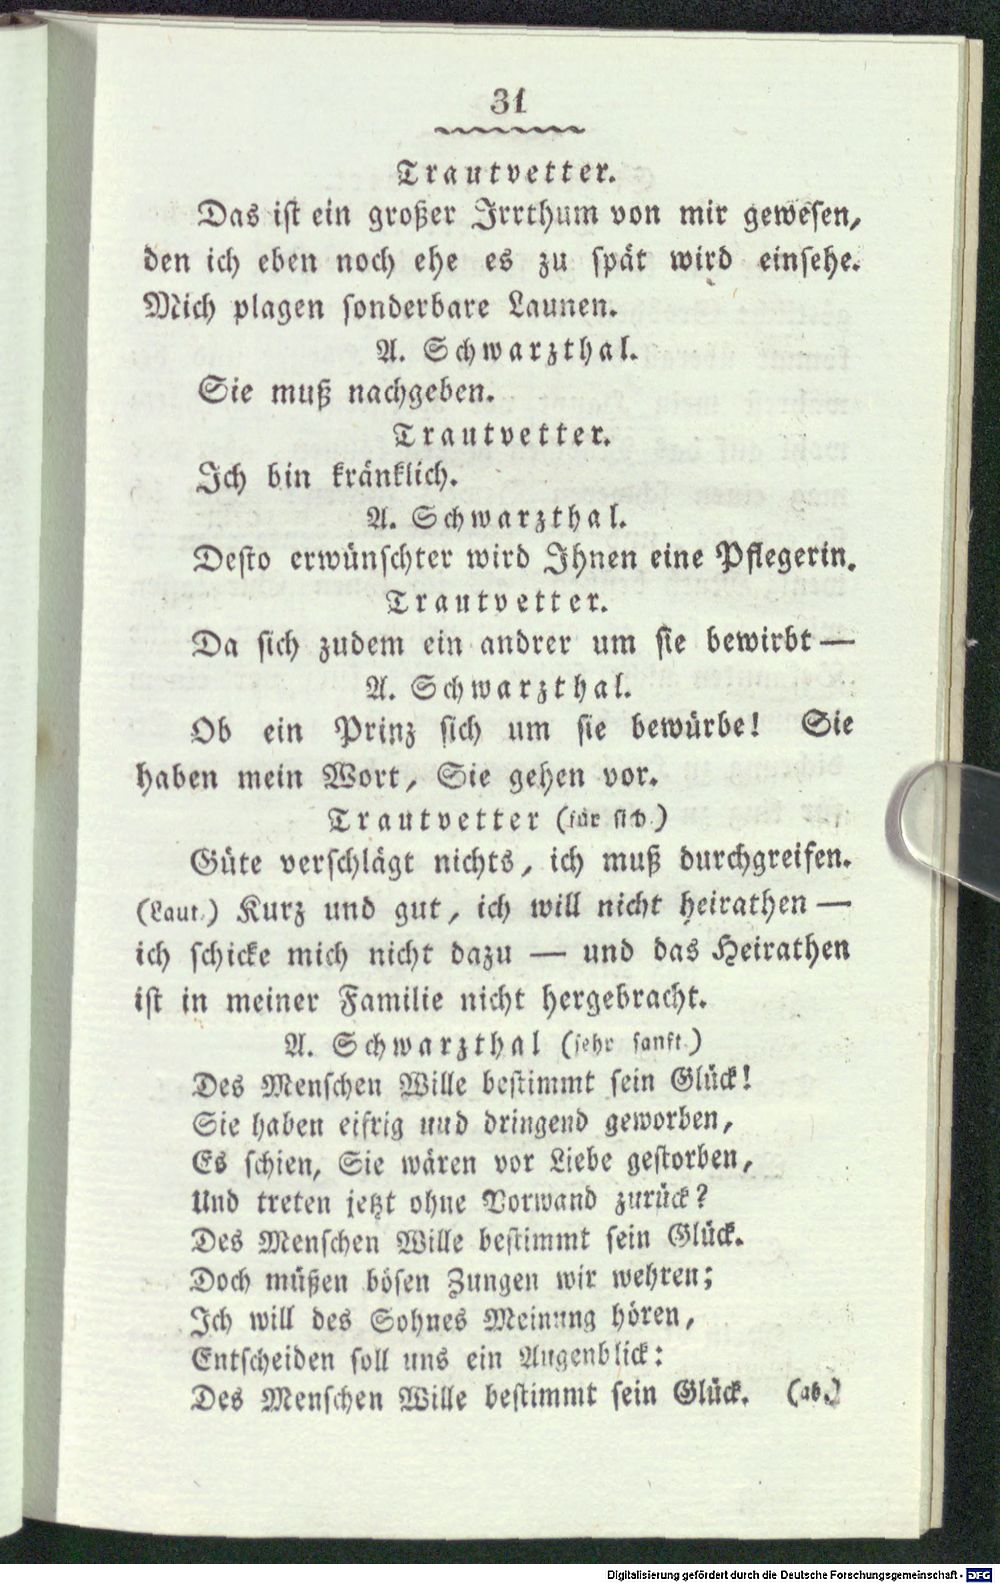 31
Trautvetter.
Das ist ein großer Irrthum von mir gewesen,
den ich eben noch ehe es zu spät wird einsehe.
Mich plagen sonderbare Launen.
A. Schwarzthal.
Sie muß nachgeben.
Trautvetter.
Ich bin kränklich.
A. Schwarzthal.
Desto erwünschter wird Ihnen eine Pflegerin.
Trautvetter.
Da sich zudem ein andrer um sie bewirbt —
A. Schwarzthal.
Ob ein Prinz sich um sie bewürbe! Sie
haben mein Wort, Sie gehen vor.
Trautvetter (für sich.)
Güte verschlägt nichts, ich muß durchgreifen.
(Laut.) Kurz und gut, ich will nicht heirathen —
ich schicke mich nicht dazu — und das Heirathen
ist in meiner Familie nicht hergebracht.
A. Schwarzthal (sehr sanft.)
Des Menschen Wille bestimmt sein Glück!
Sie haben eifrig und dringend geworben,
Es schien, Sie wären vor Liebe gestorben,
Und treten jetzt ohne Vorwand zurück?
Des Menschen Wille bestimmt sein Glück.
Doch müßen bösen Zungen wir wehren;
Ich will des Sohnes Meinung hören,
Entscheiden soll uns ein Augenblick:
Des Menschen Wille bestimmt sein Glück. (ab.)
Digitalisierung gefördert durch die Deutsche Forschungsgemeinschaft - DFG